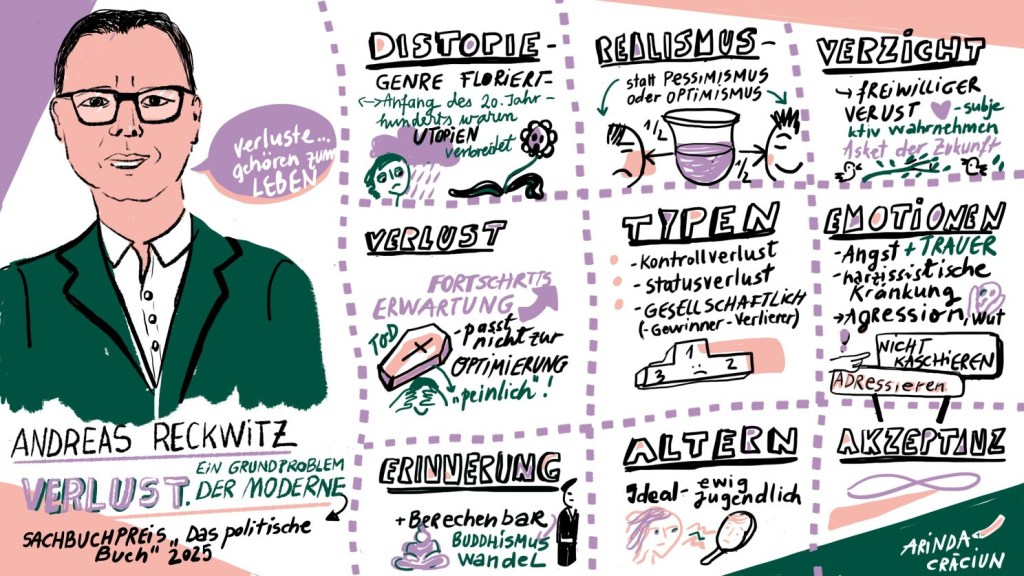 verluste...
gehören zum
LEBEN
ANDREAS RECKWITZ
VERLUST. EIN GRUNDPROBLEM
DER MODERNE
SACHBUCHPREIS „Das politische
Buch" 2025
DISTOPIE-
GENRE FLORIERT
<-> Anfang des 20. Jahr-
hunderts waren
UTOPIEN
verbreitet
REALISMUS-
statt PESSIMISMUS
oder OPTIMISMUS
1/2
1/2
VERZICHT
→ FREIWILLIGER
VERUST - subje
ktiv wahrnehmen
Asket der Zukunft
VERLUST
FORTSCHRITTS
ERWARTUNG
TOD
- passt
nicht zur
OPTIMIERUNG
„peinlich"!
TYPEN
- Kontrollverlust
- statusverlust
- GESELLSCHAFTLICH
(-Gewinner-Verlierer)
1
2
3
EMOTIONEN
- Angst + TRAUER
- narzisstische
Kränkung
→ Agression, Wut
!
NICHT
KASCHIEREN
ADRessieren
ERINNERUNG
+ Berechenbar
BUDDHISMUS
wandel
ALTERN
Ideal - ewig
jugendlich
AKZEPTANZ
ARINDA
CRĂCIUN